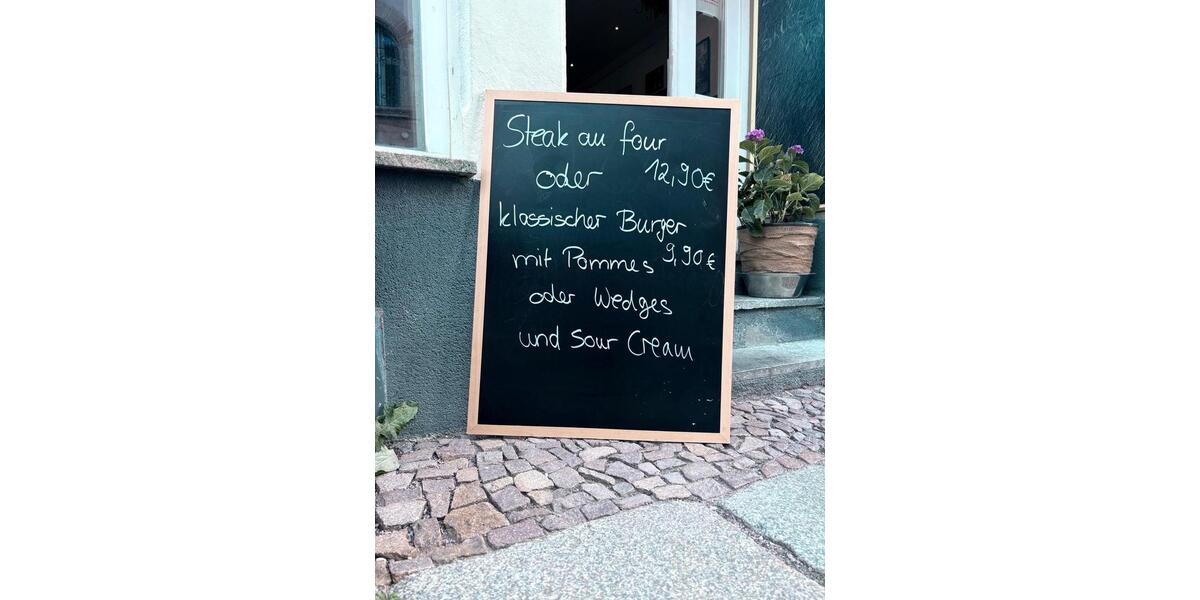 Steak au four
oder 12,90€
klassischer Burger
mit Pommes 9,90€
oder Wedges
und Sour Cream